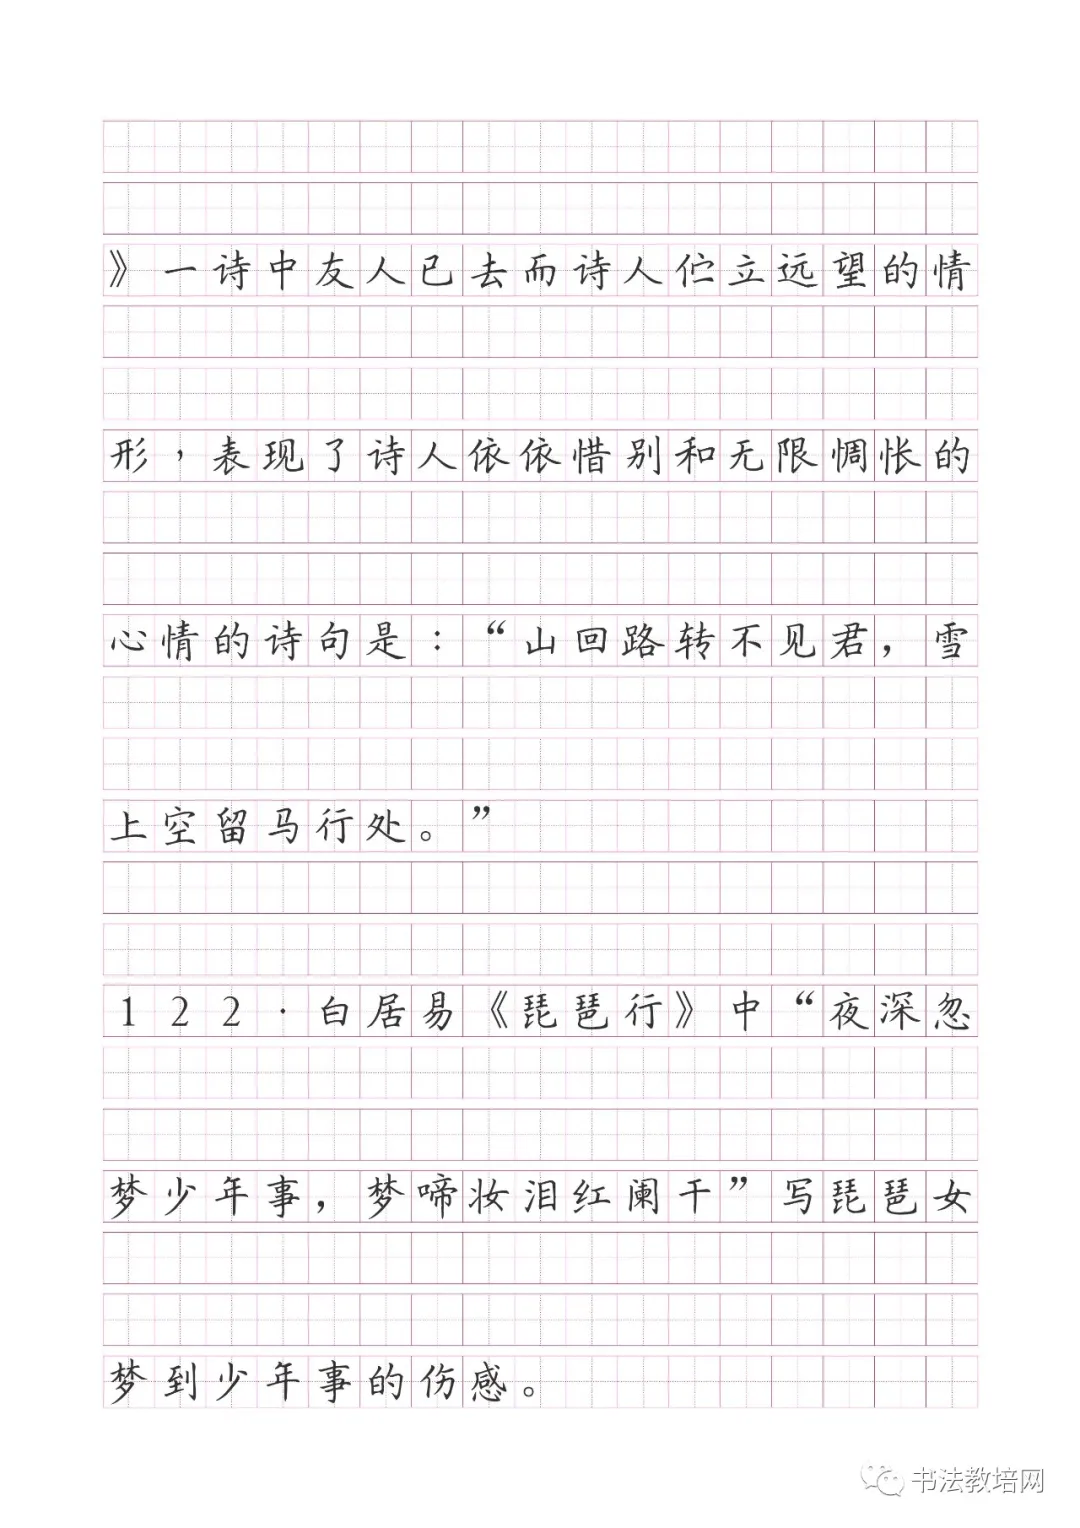 》一诗中友人已去而诗人伫立远望的情
形，表现了诗人依依惜别和无限惆怅的
心情的诗句是：“山回路转不见君，雪
上空留马行处。”
122.白居易《琵琶行》中“夜深忽
梦少年事，梦啼妆泪红阑干”写琵琶女
梦到少年事的伤感。
书法教培网